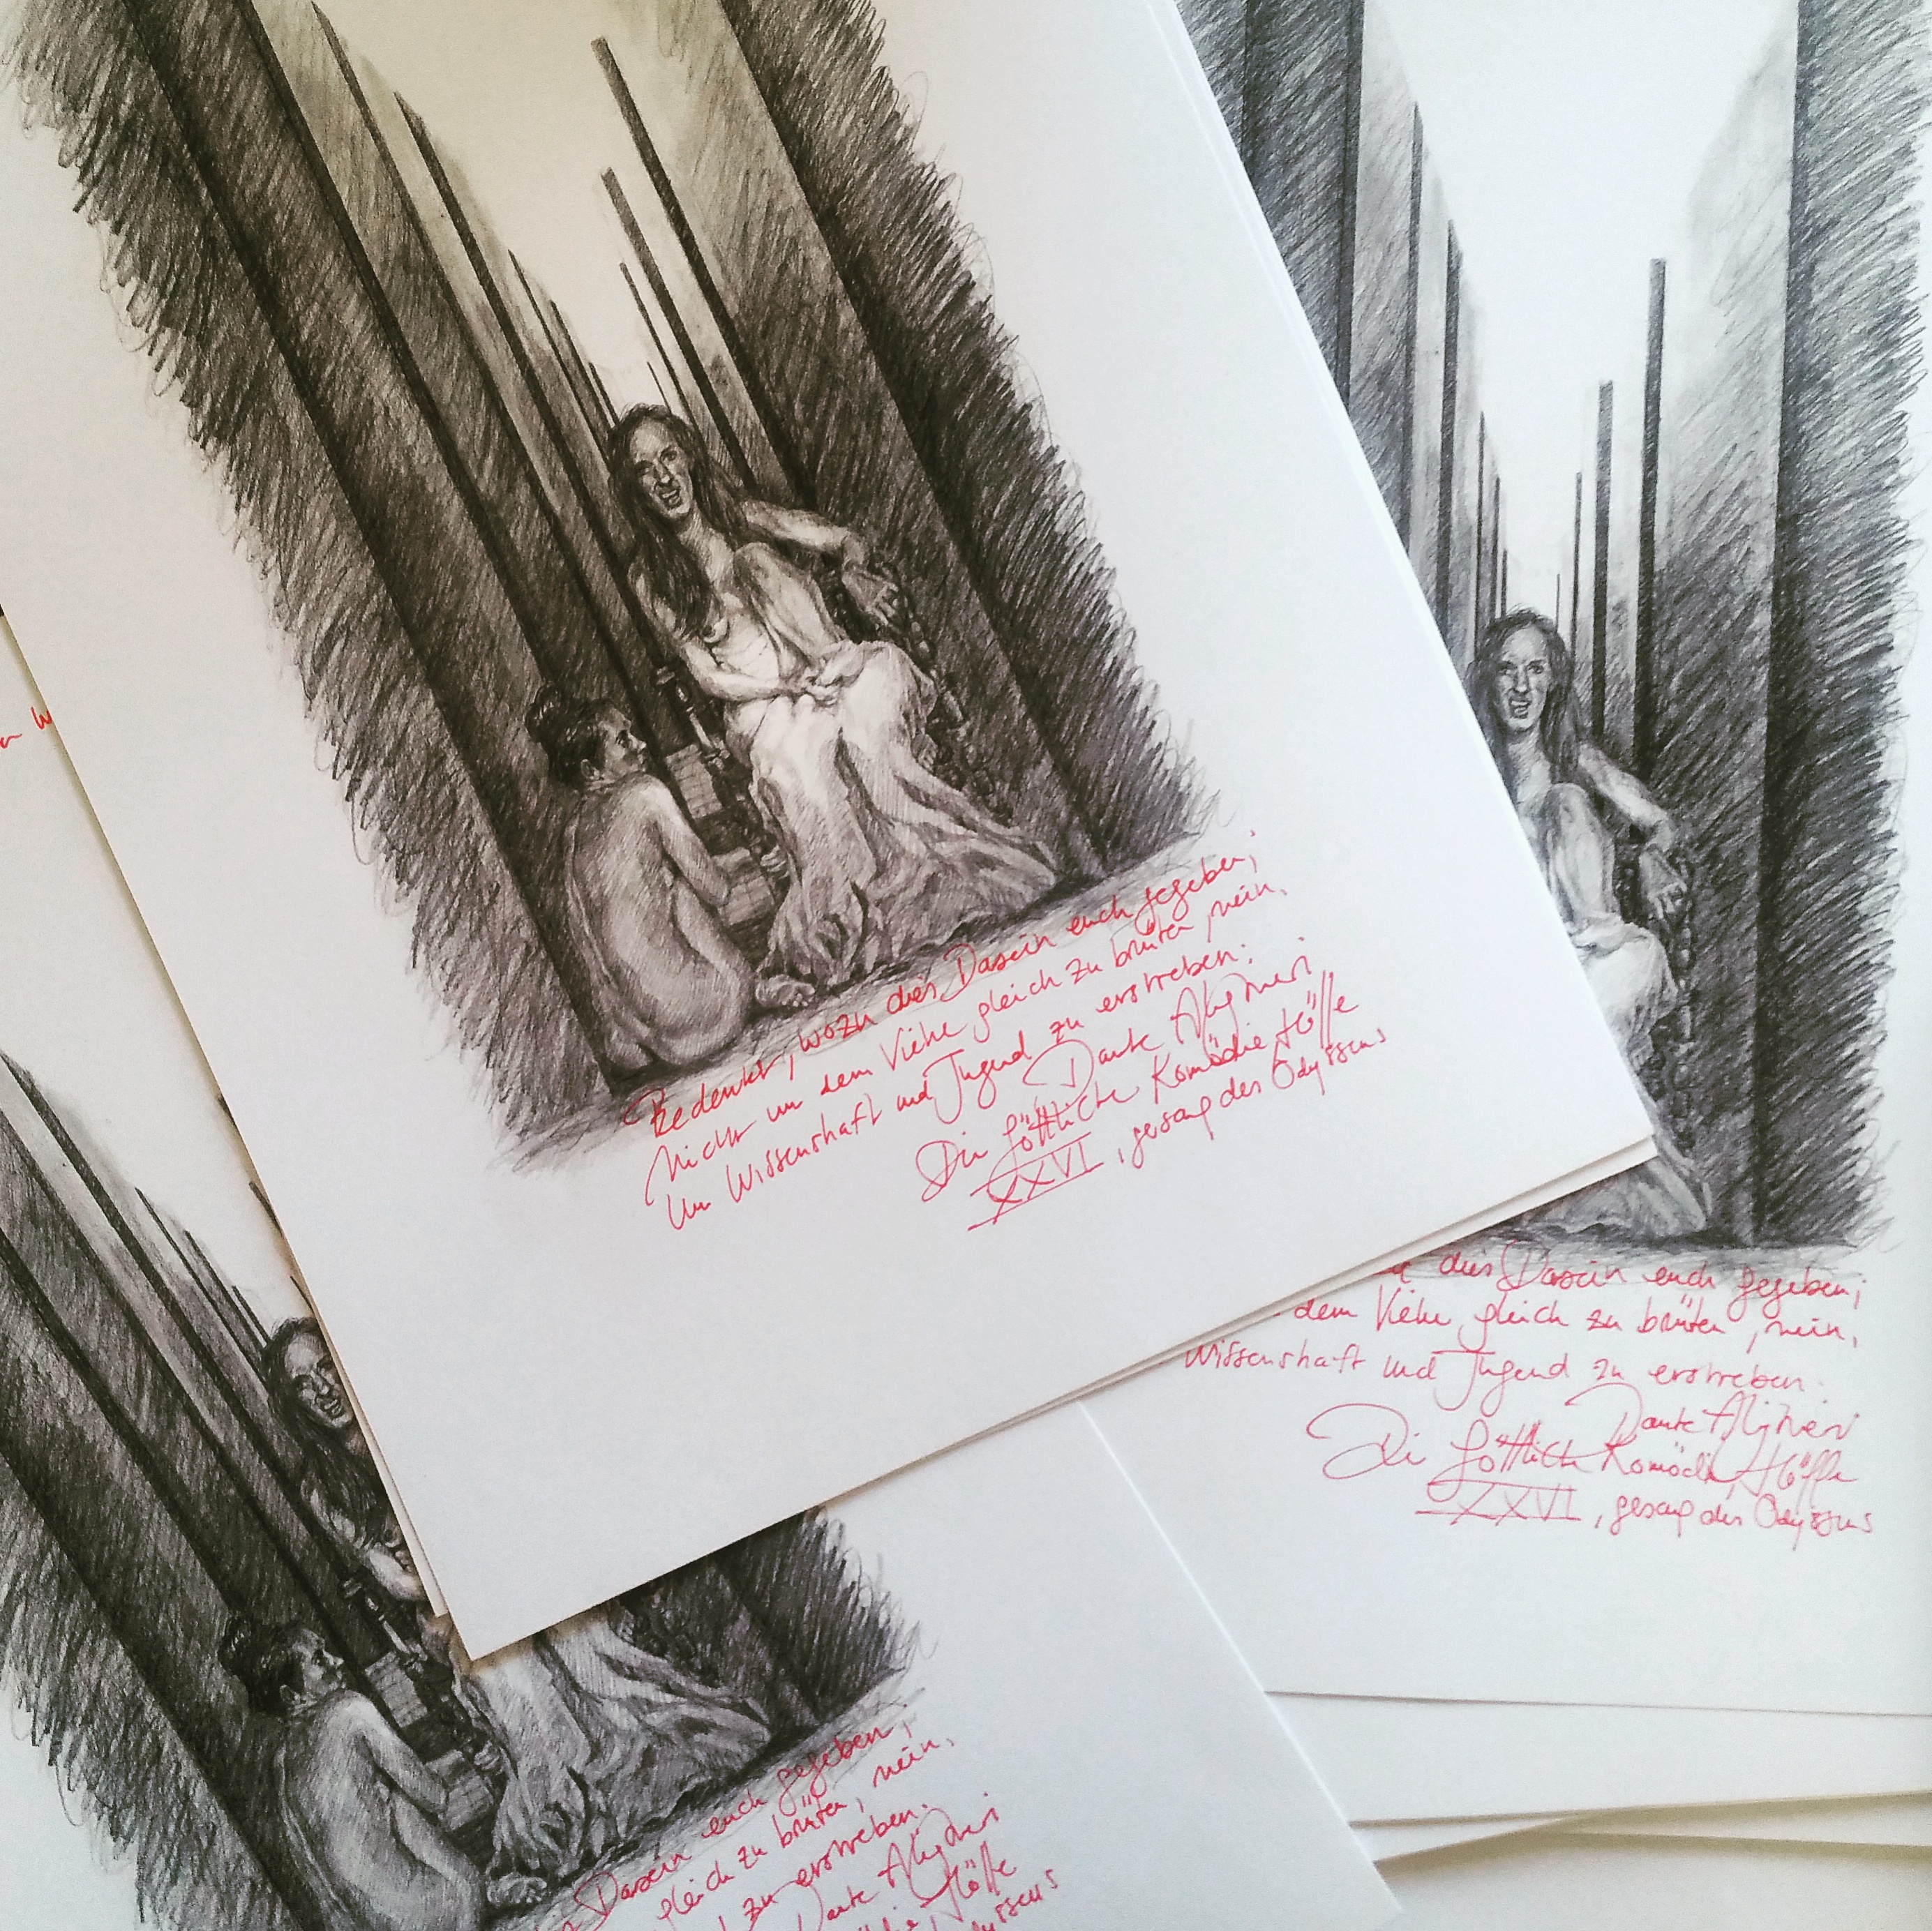 Bedenket, wozu dies Dasein euch gegeben;
Nicht um dem Viehe gleich zu brüten, nein,
Um Wissenschaft und Tugend zu erstreben.
Dante Alighieri
Die Göttliche Komödie Hölle
XXVI, gesang des Odysseus
dies Dasein euch gegeben;
dem Viehe gleich zu brüten, nein,
Wissenschaft und Tugend zu erstreben.
Dante Alighieri
Die Göttliche Komödie, Hölle
XXVI, gesang des Odysseus
Dasein euch gegeben,
gleich zu brüten, nein,
zu erstreben.
Dante Alighieri
Hölle